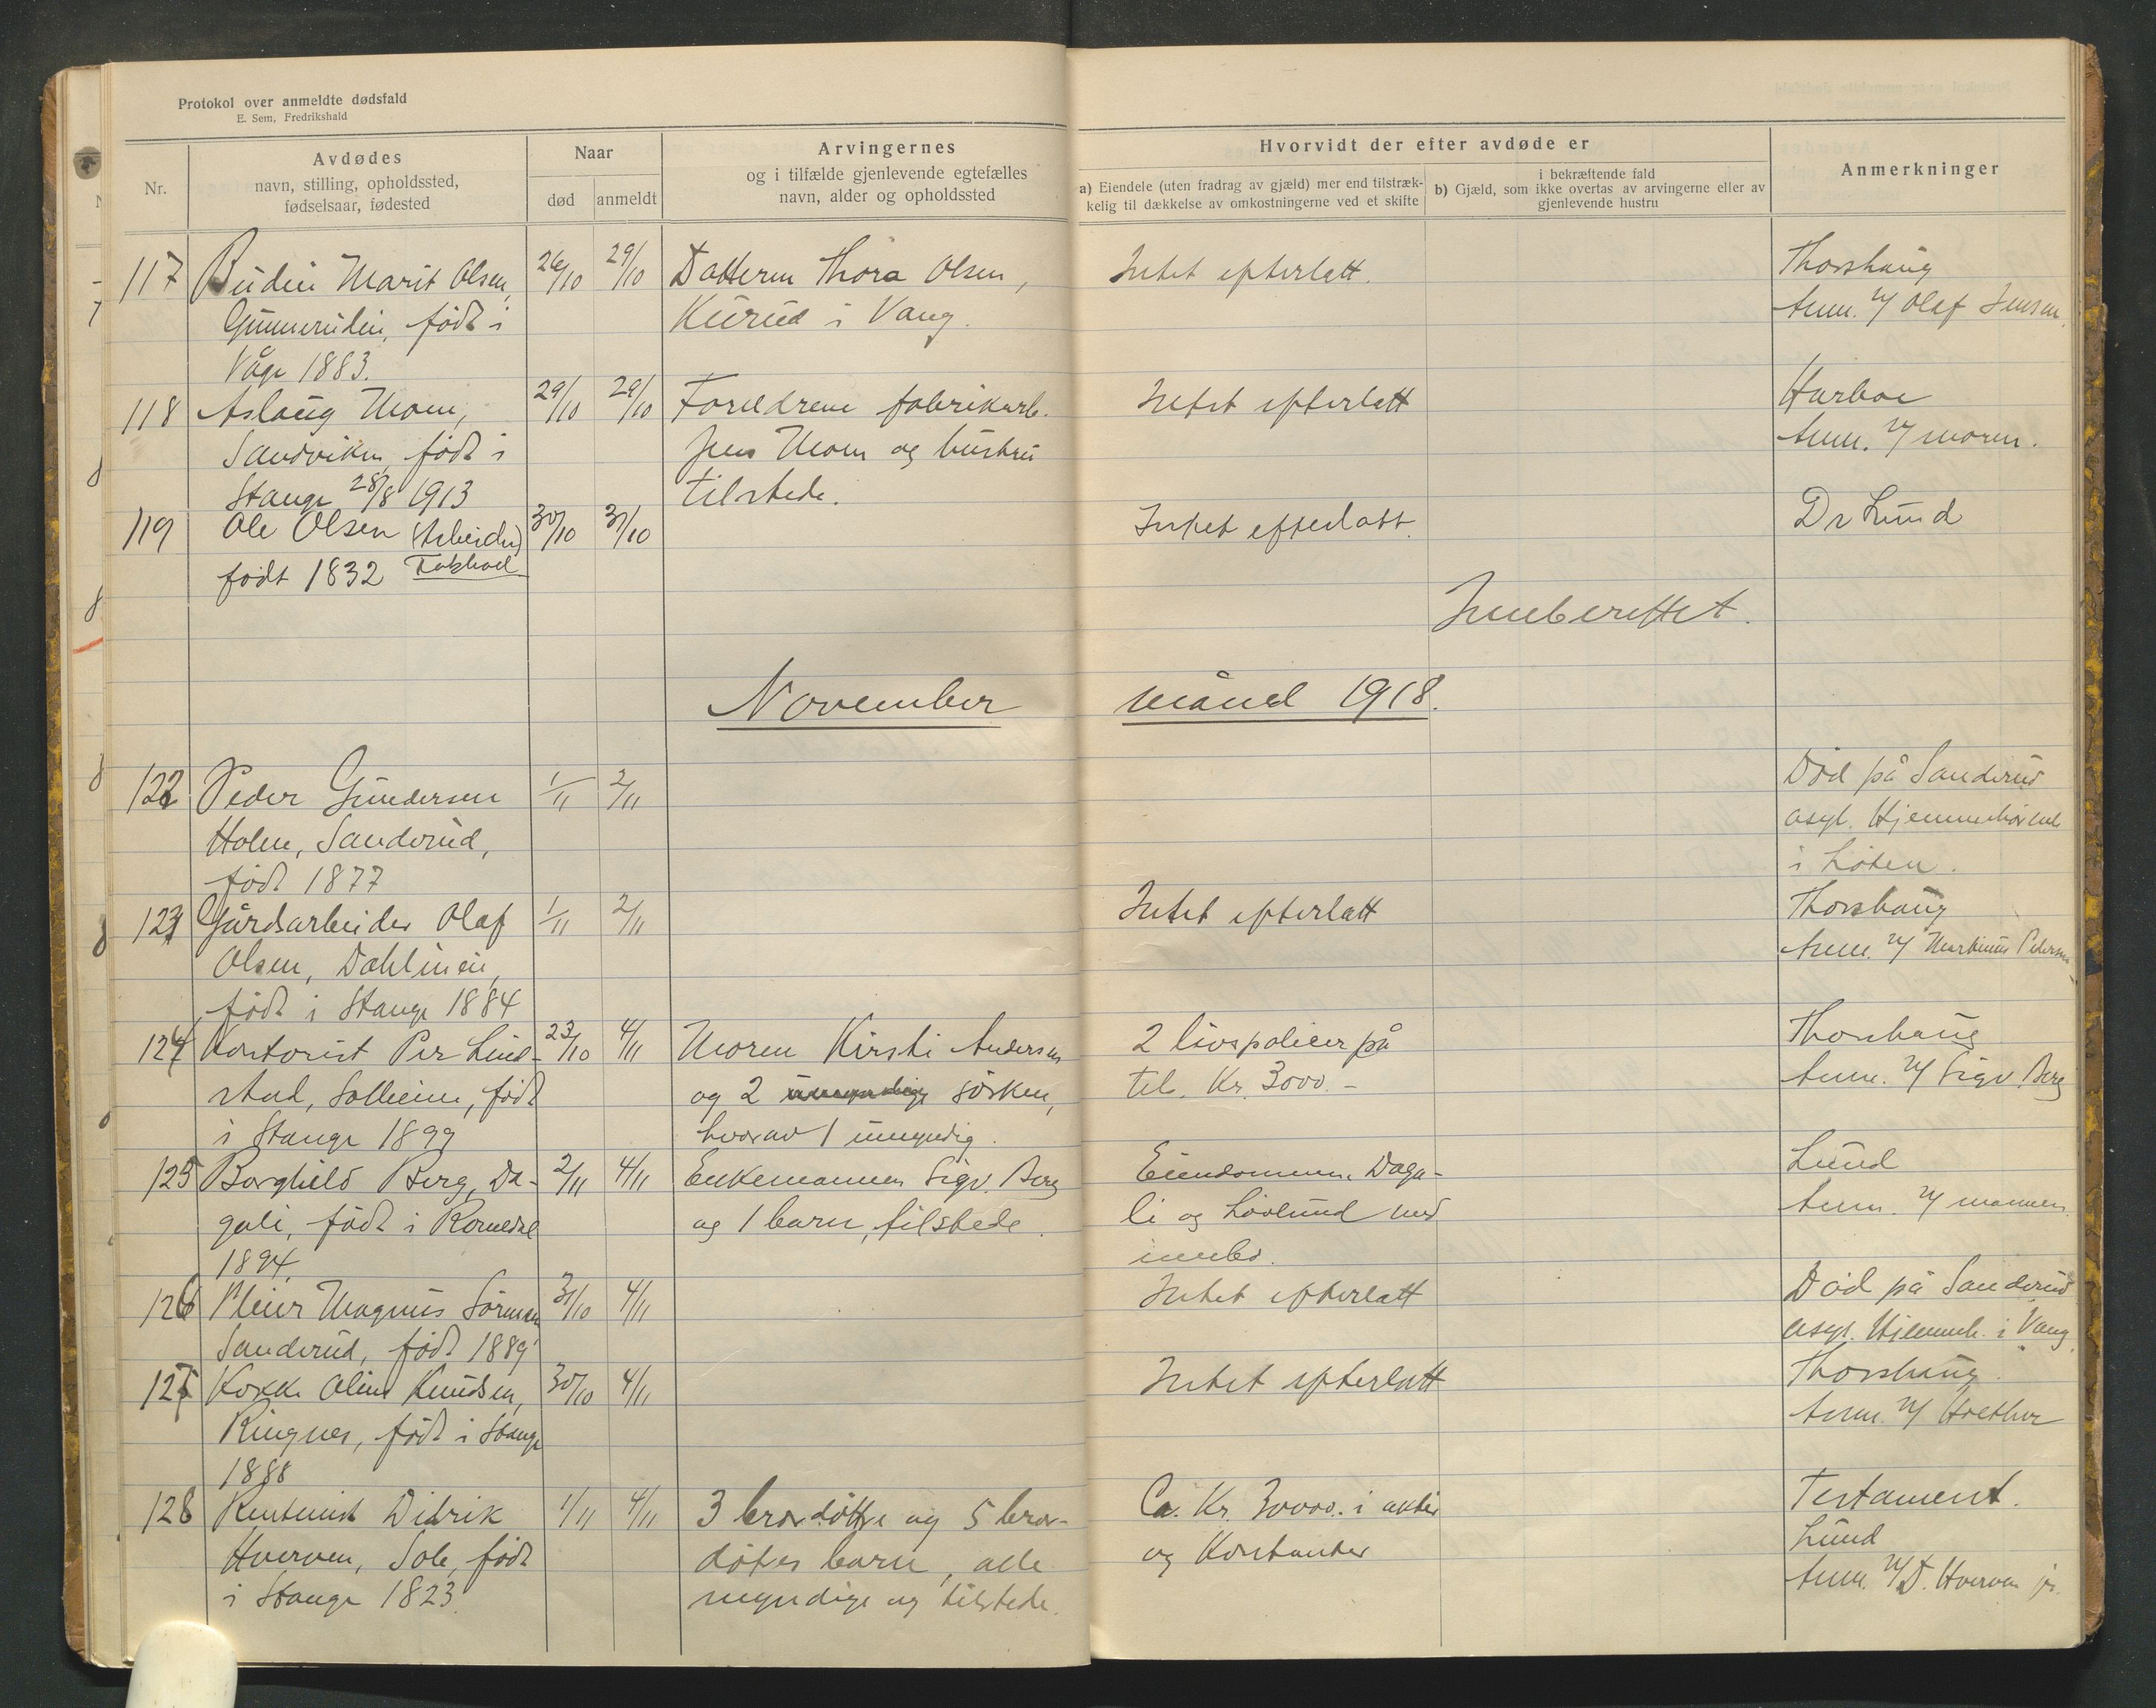 Protokol over anmeldte dødsfald
E. Sem, Fredrikshald
Nr.
Avdødes
navn, stilling, opholdssted,
fødselsaar, fødested
Naar
død
anmeldt
Arvingernes
og i tilfælde gjenlevende egtefælles
navn, alder og opholdssted
Hvorvidt der efter avdøde er
a) Eiendele (uten fradrag av gjæld) mer end tilstræk-
kelig til dækkelse av omkostningerne ved et skifte
i bekræftende fald
b) Gjæld, som ikke overtas av arvingerne eller av
gjenlevende hustru
Anmerkninger
117
Marit Olsen,
født i
Våge 1883.
26/10
29/10
Datteren Thora Olsen,
Kurud i Vang.
Intet efterlatt.
Thorshaug
Anm. v/ Olaf Jensen.
118
Aslaug Moen,
Sandviken, født i
Stange 28/8 1913
29/10
29/10
Foreldrene fabrikarb.
Jens Moen og hustru
tilstede.
Intet efterlatt
Harboe
Anm. v/ moren.
119
Ole Olsen (Arbeider)
født 1832
30/10
31/10
Intet efterlatt.
Dr Lund
Innberettet.
November
månad 1918.
122
Peder Gundersen
Holen, Sanderud,
født 1877
1/11
2/11
Død på Sanderud
asyl. Hjemmehørende
i Löten.
123
Gårdsarbeider Olaf
Olsen,
født i Stange 1884
1/11
2/11
Intet efterlatt
Thorshaug
Anm. v/ Martinus Pedersen
124
Kontorist Per Lind-
stad, Solheim, født
i Stange 1899
23/10
4/11
Moren Kirsti Andersen
og 2 søsken,
hvorav 1 umyndig.
2 livspolicer på
til. Kr. 3000.-
Thorshaug
Anm. v/ Sigv. Berg
125
Borghild Berg, Da-
gali, født i Romedal
1894.
2/11
4/11
Enkemannen Sigv. Berg
og 1 barn, tilstede.
Eiendommene Daga-
li og Lövlund med
innbo.
Lund
Anm. v/ mannen.
126
Magnus
Sanderud, født 1889
31/10
4/11
Intet efterlatt
Død på Sanderud
asyl. Hjemmeh. i Vang
127
Kokke Oline Knudsen,
Ringnes, født i Stange
1888
30/10
4/11
Intet efterlatt
Thorshaug.
Anm. v/
128
Rentenist Didrik
Hverven, Sole, født
i Stange 1823.
1/11
4/11
3 brordøttre og 5 bror-
døtres barn, alle
myndige og tilstede.
Ca. Kr. 30000.. i aktier
og Kontanter
Testament.
Lund
Anm. v/ D. Hverven jr.